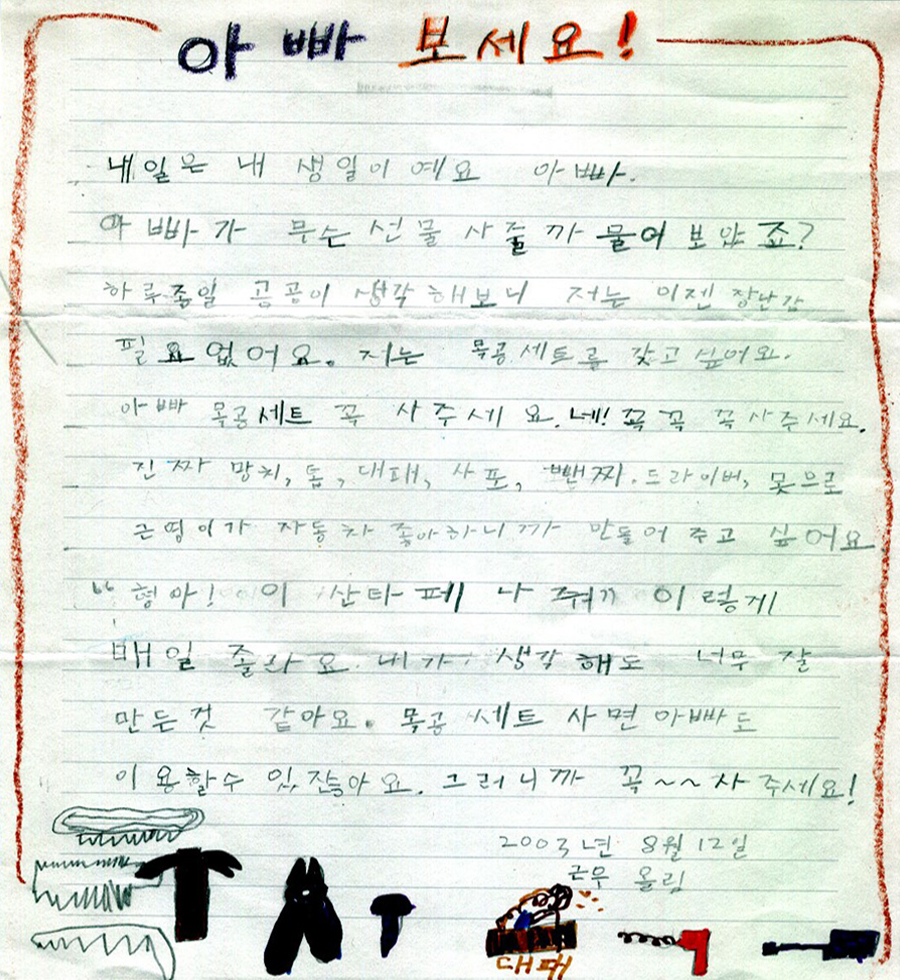 아빠 보세요!
내일은 내 생일이예요 아빠.
아빠가 무슨 선물 사줄까 물어 보았죠?
하루종일 곰곰이 생각 해보니 저는 이젠 장난감
필요없어요. 저는 목공세트를 갖고싶어요.
아빠 목공세트 꼭 사주세요. 네! 꼭 꼭 꼭 사주세요.
진짜 망치, 톱, 대패, 사포, 뺀찌. 드라이버, 못으로
근영이가 자동차 좋아하니까 만들어 주고 싶어요
"형아! 이 산타페 나 줘" 이렇게
매일 졸라요. 내가 생각해도 너무 잘
만든것 같아요. 목공 세트 사면 아빠도
이용할수 있잖아요. 그러니까 꼭~~사주세요!
2003년 8월 12일
근우 올림
대패